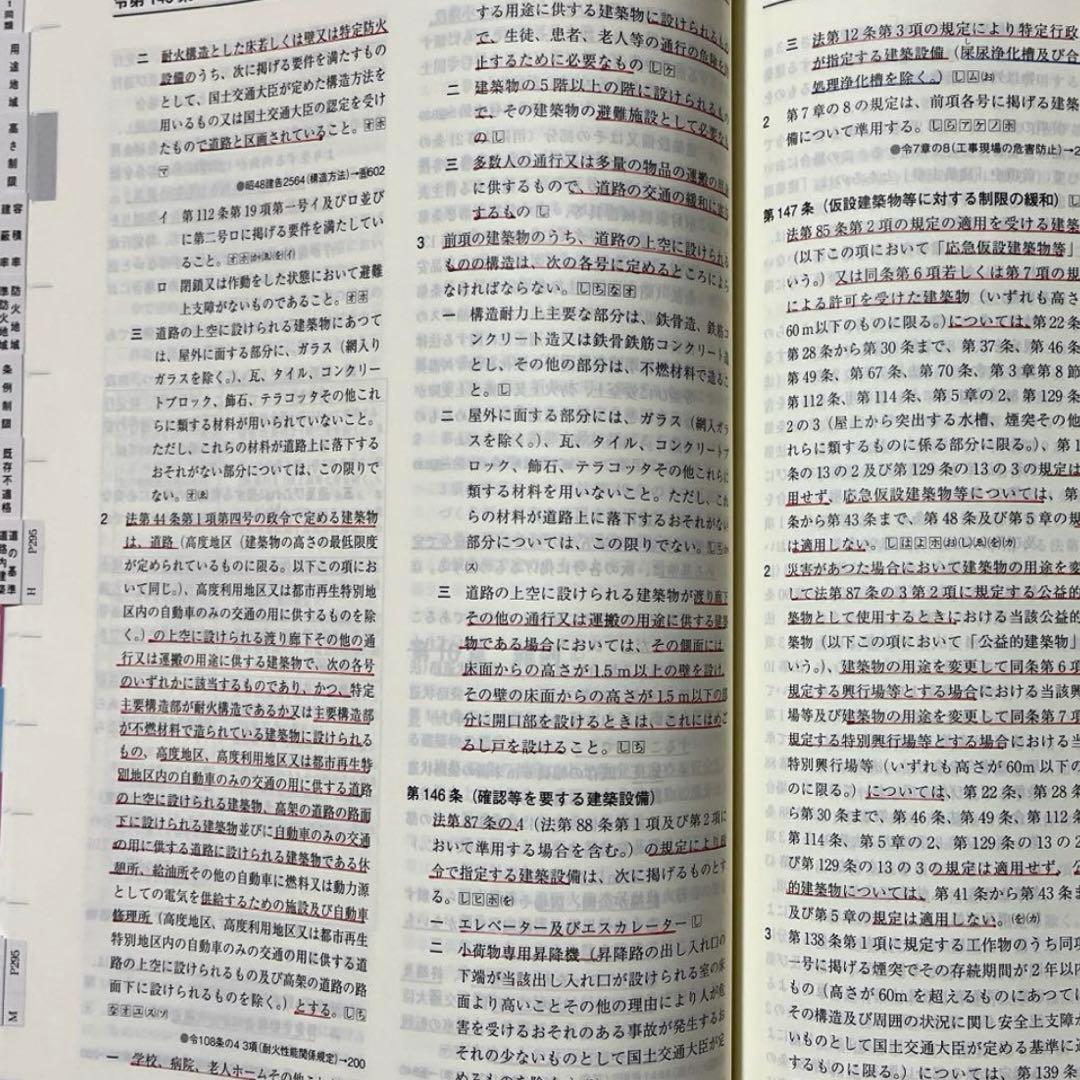 用途地域
高さ制限
建蔽率
容積率
防火地域
準防火地域
条例制限
既存不適格
道の基準
道路内建築
P295
H
P295
M
二 耐火構造とした床若しくは壁又は特定防火
設備のうち、次に掲げる要件を満たすもの
として、国土交通大臣が定めた構造方法を
用いるもの又は国土交通大臣の認定を受け
たもので道路と区画されていること。
●昭48建告2564(構造方法)→告602
イ 第112条第19項第一号イ及びロ並び
に第二号ロに掲げる要件を満たしてい
ること。
ロ 閉鎖又は作動をした状態において避難
上支障がないものであること。
三 道路の上空に設けられる建築物にあつて
は、屋外に面する部分に、ガラス（網入り
ガラスを除く。）、瓦、タイル、コンクリー
トブロック、飾石、テラコッタその他これ
らに類する材料が用いられていないこと。
ただし、これらの材料が道路上に落下する
おそれがない部分については、この限りで
ない。
2 法第44条第1項第四号の政令で定める建築物
は、道路（高度地区（建築物の高さの最低限度
が定められているものに限る。以下この項にお
いて同じ。）、高度利用地区又は都市再生特別地
区内の自動車のみの交通の用に供するものを除
く。）の上空に設けられる渡り廊下その他の通
行又は運搬の用途に供する建築物で、次の各号
のいずれかに該当するものであり、かつ、特定
主要構造部が耐火構造であるか又は主要構造部
が不燃材料で造られている建築物に設けられる
もの、高度地区、高度利用地区又は都市再生特
別地区内の自動車のみの交通の用に供する道路
の上空に設けられる建築物、高架の道路の路面
下に設けられる建築物並びに自動車のみの交通
の用に供する道路に設けられる建築物である休
憩所、給油所その他の自動車に燃料又は動力源
としての電気を供給するための施設及び自動車
修理所（高度地区、高度利用地区又は都市再生
特別地区内の自動車のみの交通の用に供する道
路の上空に設けられるもの及び高架の道路の路
面下に設けられるものを除く。）とする。
●令108条の4 3項(耐火性能関係規定)→200
一 学校、病院、老人ホームその他
する用途に供する建築物に設けられるもの
で、生徒、患者、老人等の通行の危険を
止するために必要なもの
二 建築物の5階以上の階に設けられるもの
で、その建築物の避難施設として必要な
の
三 多数人の通行又は多量の物品の運搬の用
に供するもので、道路の交通の緩和に寄
するもの
3 前項の建築物のうち、道路の上空に設けられる
ものの構造は、次の各号に定めるところによら
なければならない。
一 構造耐力上主要な部分は、鉄骨造、鉄筋コ
ンクリート造又は鉄骨鉄筋コンクリート造
とし、その他の部分は、不燃材料で造るこ
と。
二 屋外に面する部分には、ガラス（網入ガラ
スを除く。）、瓦、タイル、コンクリートブ
ロック、飾石、テラコッタその他これらに
類する材料を用いないこと。ただし、これ
らの材料が道路上に落下するおそれがない
部分については、この限りでない。
三 道路の上空に設けられる建築物が渡り廊下
その他の通行又は運搬の用途に供する建築
物である場合においては、その側面には、
床面からの高さが1.5m以上の壁を設け、
その壁の床面からの高さが1.5m以下の部
分に開口部を設けるときは、これにはめご
ろし戸を設けること。
第146条（確認等を要する建築設備）
法第87条の4（法第88条第1項及び第2項に
おいて準用する場合を含む。）の規定により政
令で指定する建築設備は、次に掲げるものとす
る。
一 エレベーター及びエスカレーター
二 小荷物専用昇降機（昇降路の出し入れ口の
下端が当該出し入れ口が設けられる室の床
面より高いことその他の理由により人が危
害を受けるおそれのある事故が発生するお
それの少ないものとして国土交通大臣が定
めるものを除く
三 法第12条第3項の規定により特定行政
が指定する建築設備（屎尿浄化槽及び合
処理浄化槽を除く。）
2 第7章の8の規定は、前項各号に掲げる建築
備について準用する。
●令7章の8(工事現場の危害防止)→2
第147条（仮設建築物等に対する制限の緩和）
法第85条第2項の規定の適用を受ける建築
（以下この項において「応急仮設建築物等」
いう。）又は同条第6項若しくは第7項の規
による許可を受けた建築物（いずれも高さ
60m以下のものに限る。）については、第22条
第28条から第30条まで、第37条、第46条
第49条、第67条、第70条、第3章第8節
第112条、第114条、第5章の2、第129条
2の3（屋上から突出する水槽、煙突その他
れらに類するものに係る部分に限る。）、第1
条の13の2及び第129条の13の3の規定は
用せず、応急仮設建築物等については、第
条から第43条まで、第48条及び第5章の規
は適用しない。
2 災害があつた場合において建築物の用途を変
して法第87条の3第2項に規定する公益的
築物として使用するときにおける当該公益的
築物（以下この項において「公益的建築物」
いう。）、建築物の用途を変更して同条第6項
規定する興行場等とする場合における当該興
場等及び建築物の用途を変更して同条第7項
規定する特別興行場等とする場合における当
特別興行場等（いずれも高さが60m以下の
のに限る。）については、第22条、第28条
ら第30条まで、第46条、第49条、第112条
第114条、第5章の2、第129条の13の2
び第129条の13の3の規定は適用せず、公
的建築物については、第41条から第43条ま
及び第5章の規定は適用しない。
3 第138条第1項に規定する工作物のうち同項
一号に掲げる煙突でその存続期間が2年以内
もの（高さが60mを超えるものにあつては
その構造及び周囲の状況に関し安全上支障が
いものとして国土交通大臣が定める基準に適
するものに限る。）については、第139条